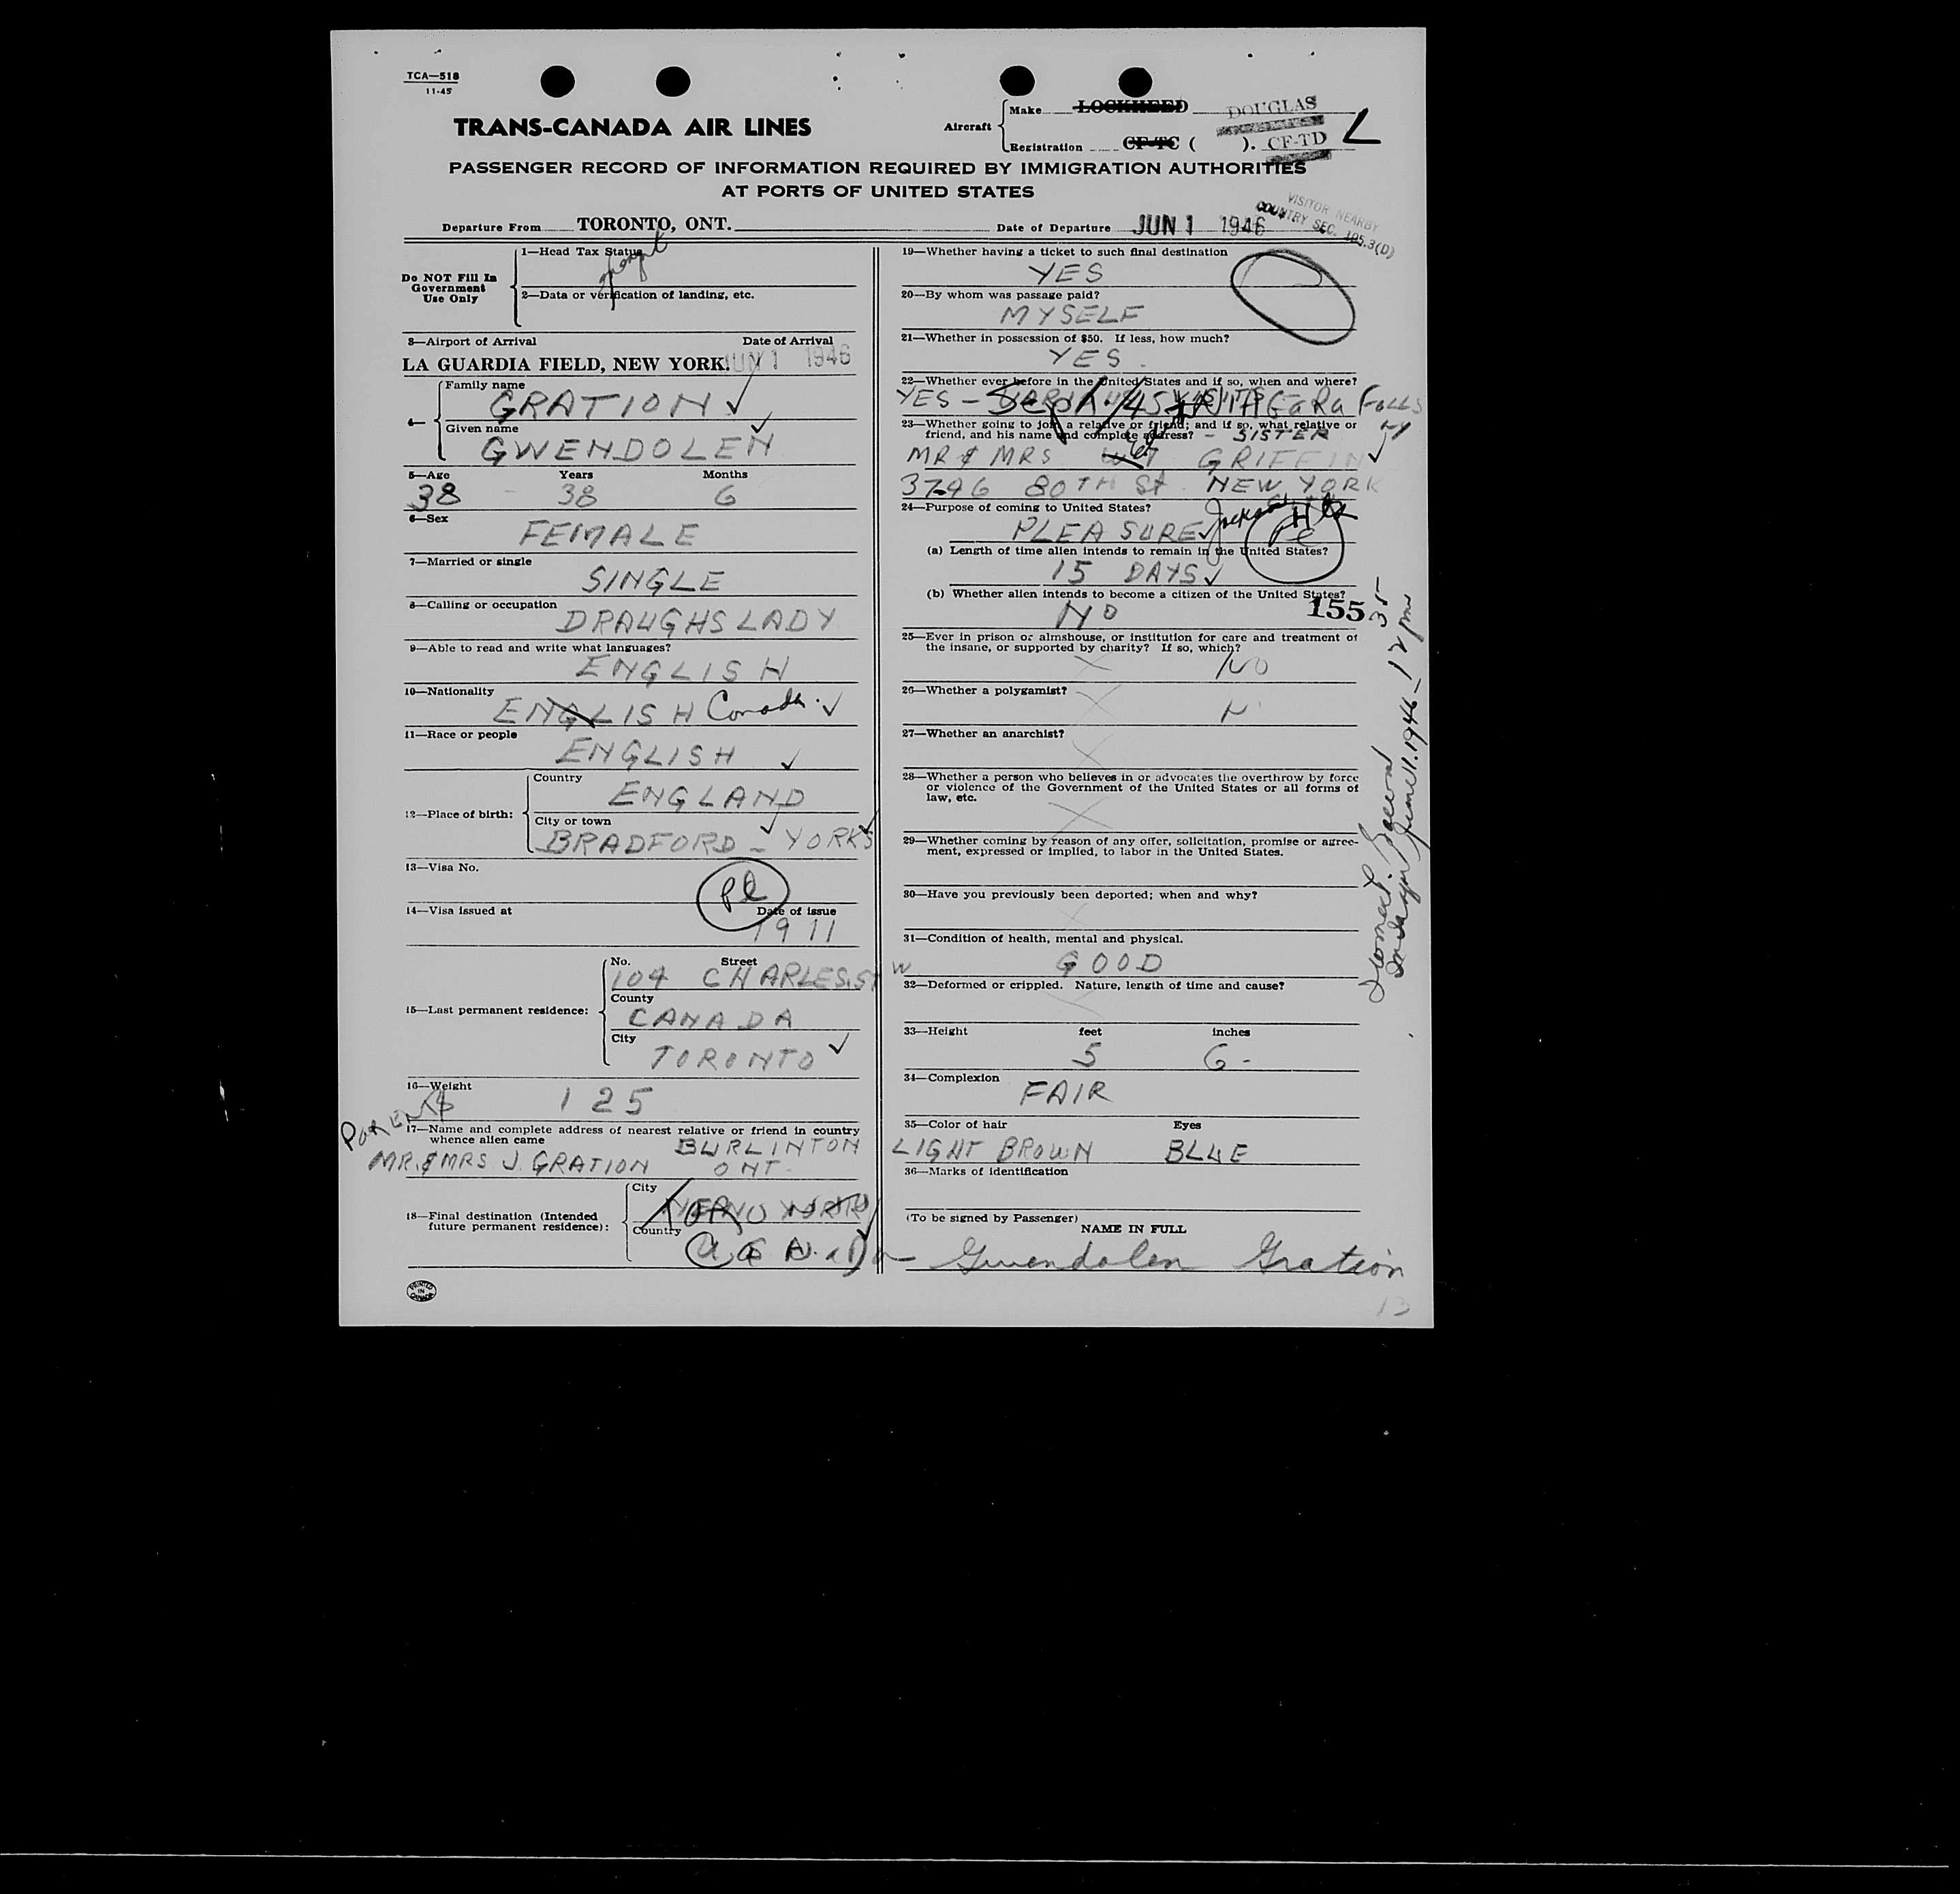 TCA—518
11-45
TRANS-CANADA AIR LINES
Aircraft
Make LOCKHEED DOUGLAS
Registration CF-TC ( ). CF-TD L
PASSENGER RECORD OF INFORMATION REQUIRED BY IMMIGRATION AUTHORITIES
AT PORTS OF UNITED STATES
VISITOR NEARBY
COUNTRY SEC. 105.3(D)
Departure From TORONTO, ONT. Date of Departure JUN 1 1946
Do NOT Fill In
Government
Use Only
1—Head Tax Status
2—Data or verification of landing, etc.
3—Airport of Arrival Date of Arrival
LA GUARDIA FIELD, NEW YORK. JUN 1 1946
4—
Family name
GRATION
Given name
GWENDOLEN
5—Age Years Months
38 - 38 6
6—Sex
FEMALE
7—Married or single
SINGLE
8—Calling or occupation
DRAUGHSLADY
9—Able to read and write what languages?
ENGLISH
10—Nationality
ENGLISH Canada
11—Race or people
ENGLISH
12—Place of birth:
Country
ENGLAND
City or town
BRADFORD - YORKS
13—Visa No.
Pl
14—Visa issued at Date of issue
1911
15—Last permanent residence:
No. Street
104 CHARLES.ST W
County
CANADA
City
TORONTO
16—Weight
125
PARENTS
17—Name and complete address of nearest relative or friend in country
whence alien came
BURLINTON
MR. & MRS J. GRATION ONT-
18—Final destination (Intended
future permanent residence):
City
Country
19—Whether having a ticket to such final destination
YES
20—By whom was passage paid?
MYSELF
21—Whether in possession of $50. If less, how much?
YES
22—Whether ever before in the United States and if so, when and where?
YES - Sept. /45 NIAGaRa FaLLS
NY
23—Whether going to join a relative or friend; and if so, what relative or
friend, and his name and complete address? - SISTER
MR & MRS GRIFFIN
3746 80TH St. NEW YORK
24—Purpose of coming to United States?
PLEASURE Jackson Hts
Pl
(a) Length of time alien intends to remain in the United States?
15 DAYS
(b) Whether alien intends to become a citizen of the United States?
NO
155
25—Ever in prison or almshouse, or institution for care and treatment of
the insane, or supported by charity? If so, which?
NO
26—Whether a polygamist?
27—Whether an anarchist?
28—Whether a person who believes in or advocates the overthrow by force
or violence of the Government of the United States or all forms of
law, etc.
29—Whether coming by reason of any offer, solicitation, promise or agree-
ment, expressed or implied, to labor in the United States.
30—Have you previously been deported; when and why?
31—Condition of health, mental and physical.
GOOD
32—Deformed or crippled. Nature, length of time and cause?
33—Height feet inches
5 6-
34—Complexion
FAIR
35—Color of hair Eyes
LIGHT BROWN BLUE
36—Marks of identification
(To be signed by Passenger)
NAME IN FULL
Gwendolen Gration
PRINTED
IN
CANADA
13
June 1. 1946